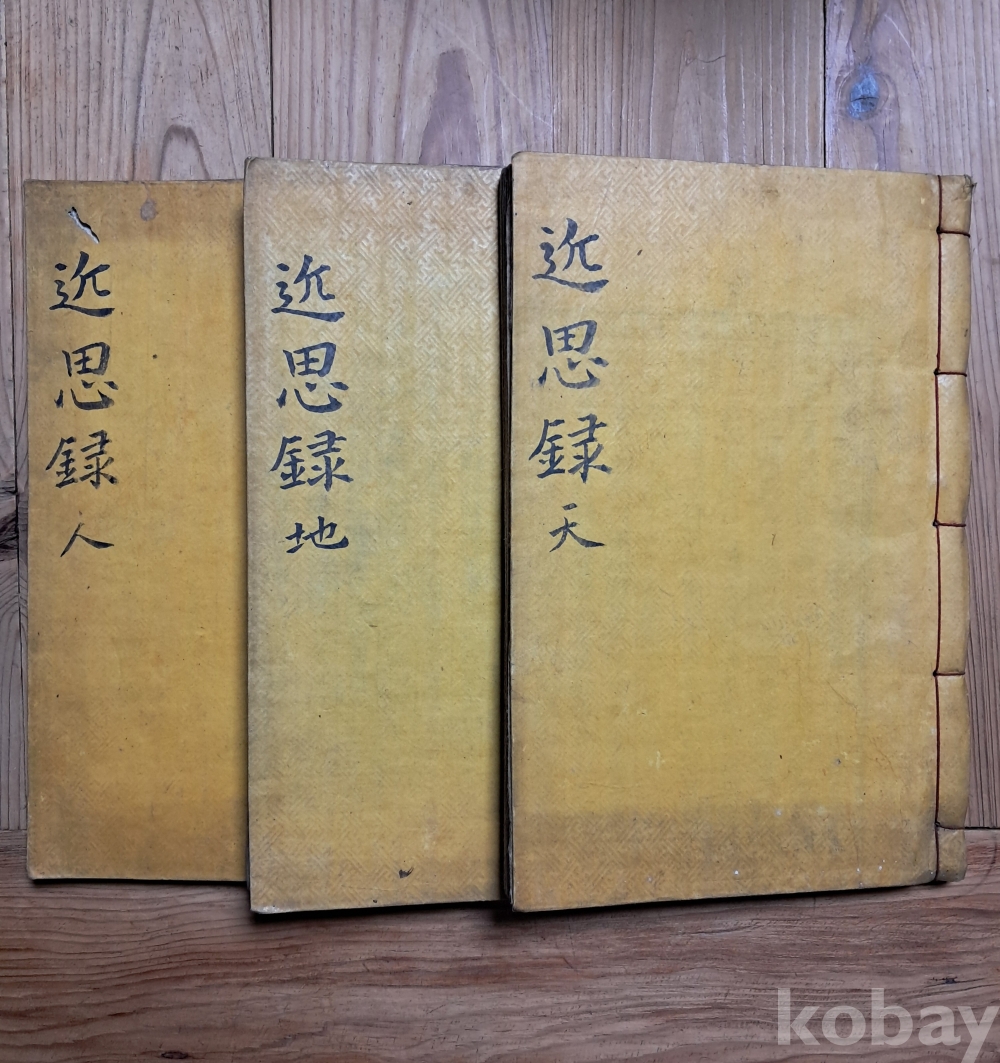 近思録天
近思録地
近思録人
kobay